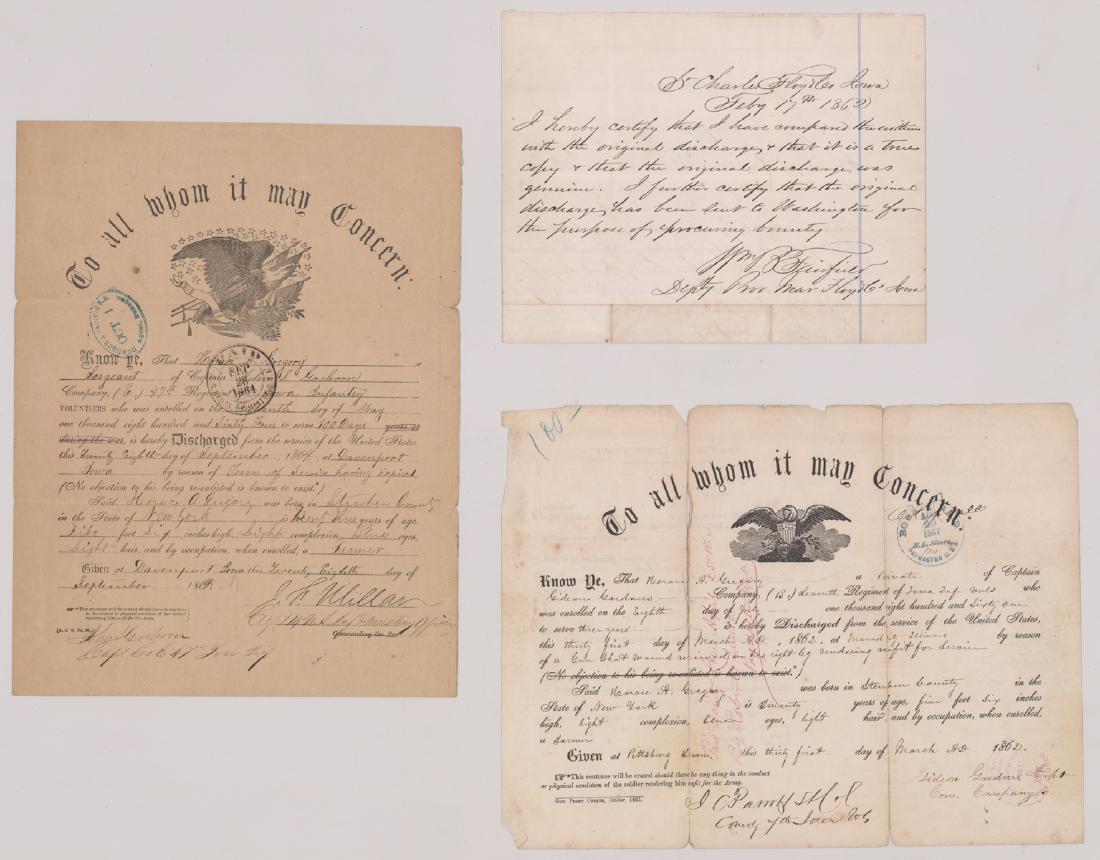 To all whom it may Concern:
OCT 1
PAID
SEP
28
1864
Know ye, That Horace O Gregory a
Sergeant of Captain Goshorn
Company, (E.) 47th Regiment Iowa Infantry
VOLUNTEERS who was enrolled on the day of May
one thousand eight hundred and Sixty Four to serve 100 Days years or
during the war, is hereby Discharged from the service of the United States
this Twenty Eighth day of September, 1864, at Davenport
Iowa by reason of Term of Service having expired
(No objection to his being re-enlisted is known to exist.*)
Said Horace O. Gregory was born in Steuben County
in the State of New York is years of age,
Five feet Six inches high, Light complexion, Blue eyes,
Light hair, and by occupation, when enrolled, a Farmer
Given at Davenport Iowa this Twenty Eighth day of
September 1864.
☞*This sentence will be erased should there be anything
in the conduct or physical condition of the soldier
rendering him unfit for the Army.
Commanding the Reg't
Capt Co E 47th Iowa Inf
St Charles Floyd Co Iowa
Feby 17th 1862
I hereby certify that I have compared the within
with the original discharge & that it is a true
copy & that the original discharge was
genuine. I further certify that the original
discharge has been sent to Washington for
the purpose of procuring bounty
Wm B Fairfield
Depty Prov Mar Floyd Co Iowa
100-
To all whom it may Concern:
PAYMASTER U.S.A.
Know Ye, That Horace A. Gregory a Private of Captain
Gideon Gardners Company, (B) Seventh Regiment of Iowa Inf Vols who
was enrolled on the Eighth one thousand eight hundred and Sixty one
to serve three years is hereby Discharged from the service of the United States,
this thirty first day of March A.D., 1862, at Mound City Illinois by reason
of a Gun Shot Wound received in the right leg rendering unfit for service
(No objection to his being re-enlisted is known to exist.*)
Said Horace A. Gregory was born in Steuben County in the
State of New York is Twenty years of age, five feet six inches
high, light complexion, blue eyes, light hair, and by occupation, when enrolled,
a Farmer
Given at Pittsburg this thirty first day of March A.D 1862.
☞*This sentence will be erased should there be any thing in the conduct
or physical condition of the soldier rendering him unfit for the Army.
Gov. Print. Office, October, 1861.
Gideon Gardner Capt
Com. Company
Comdg 7th Iowa Vols